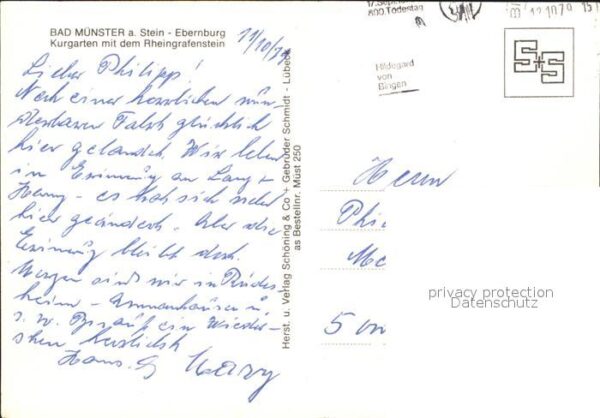 BAD MÜNSTER a. Stein - Ebernburg
Kurgarten mit dem Rheingrafenstein
11/10/79
Lieber Philipp!
Nach einer herrlichen wun-
derbaren Fahrt glücklich
hier gelandet. Wir leben
in Erinnerung an
es hat sich sehr
hier geändert. Aber die
Erinnerung bleibt doch.
Morgen sind wir in Rüdes-
heim - Assmannshausen u
s. w. Bis auf ein Wieder-
sehen herzlichst
Hans.
Herst. u. Verlag Schöning & Co + Gebrüder Schmidt - Lübeck
as Bestellnr. Müst 250
17. Septem
800. Todestag
Hildegard
von
Bingen
12.10.79
S+S
Herrn
Phi
Me
5
privacy protection
Datenschutz